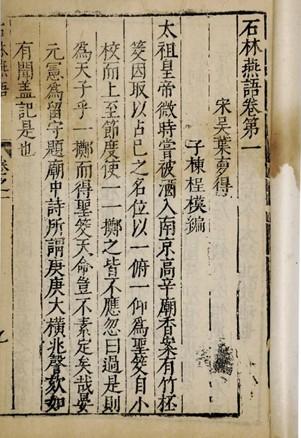 石林燕語卷第一
宋吳葉夢得
子棟桯模編
太祖皇帝微時嘗被酒入南京高辛廟香案有竹桮
筊因取以占已之名位以一俯一仰為聖筊自小
校而上至節度使一一擲之皆不應忽曰過是則
為天子乎一擲而得聖筊天命豈不素定矣哉晏
元憲為留守題廟中詩所謂庚庚大橫兆謦欬如
有聞蓋記是也
石林燕語
卷之一